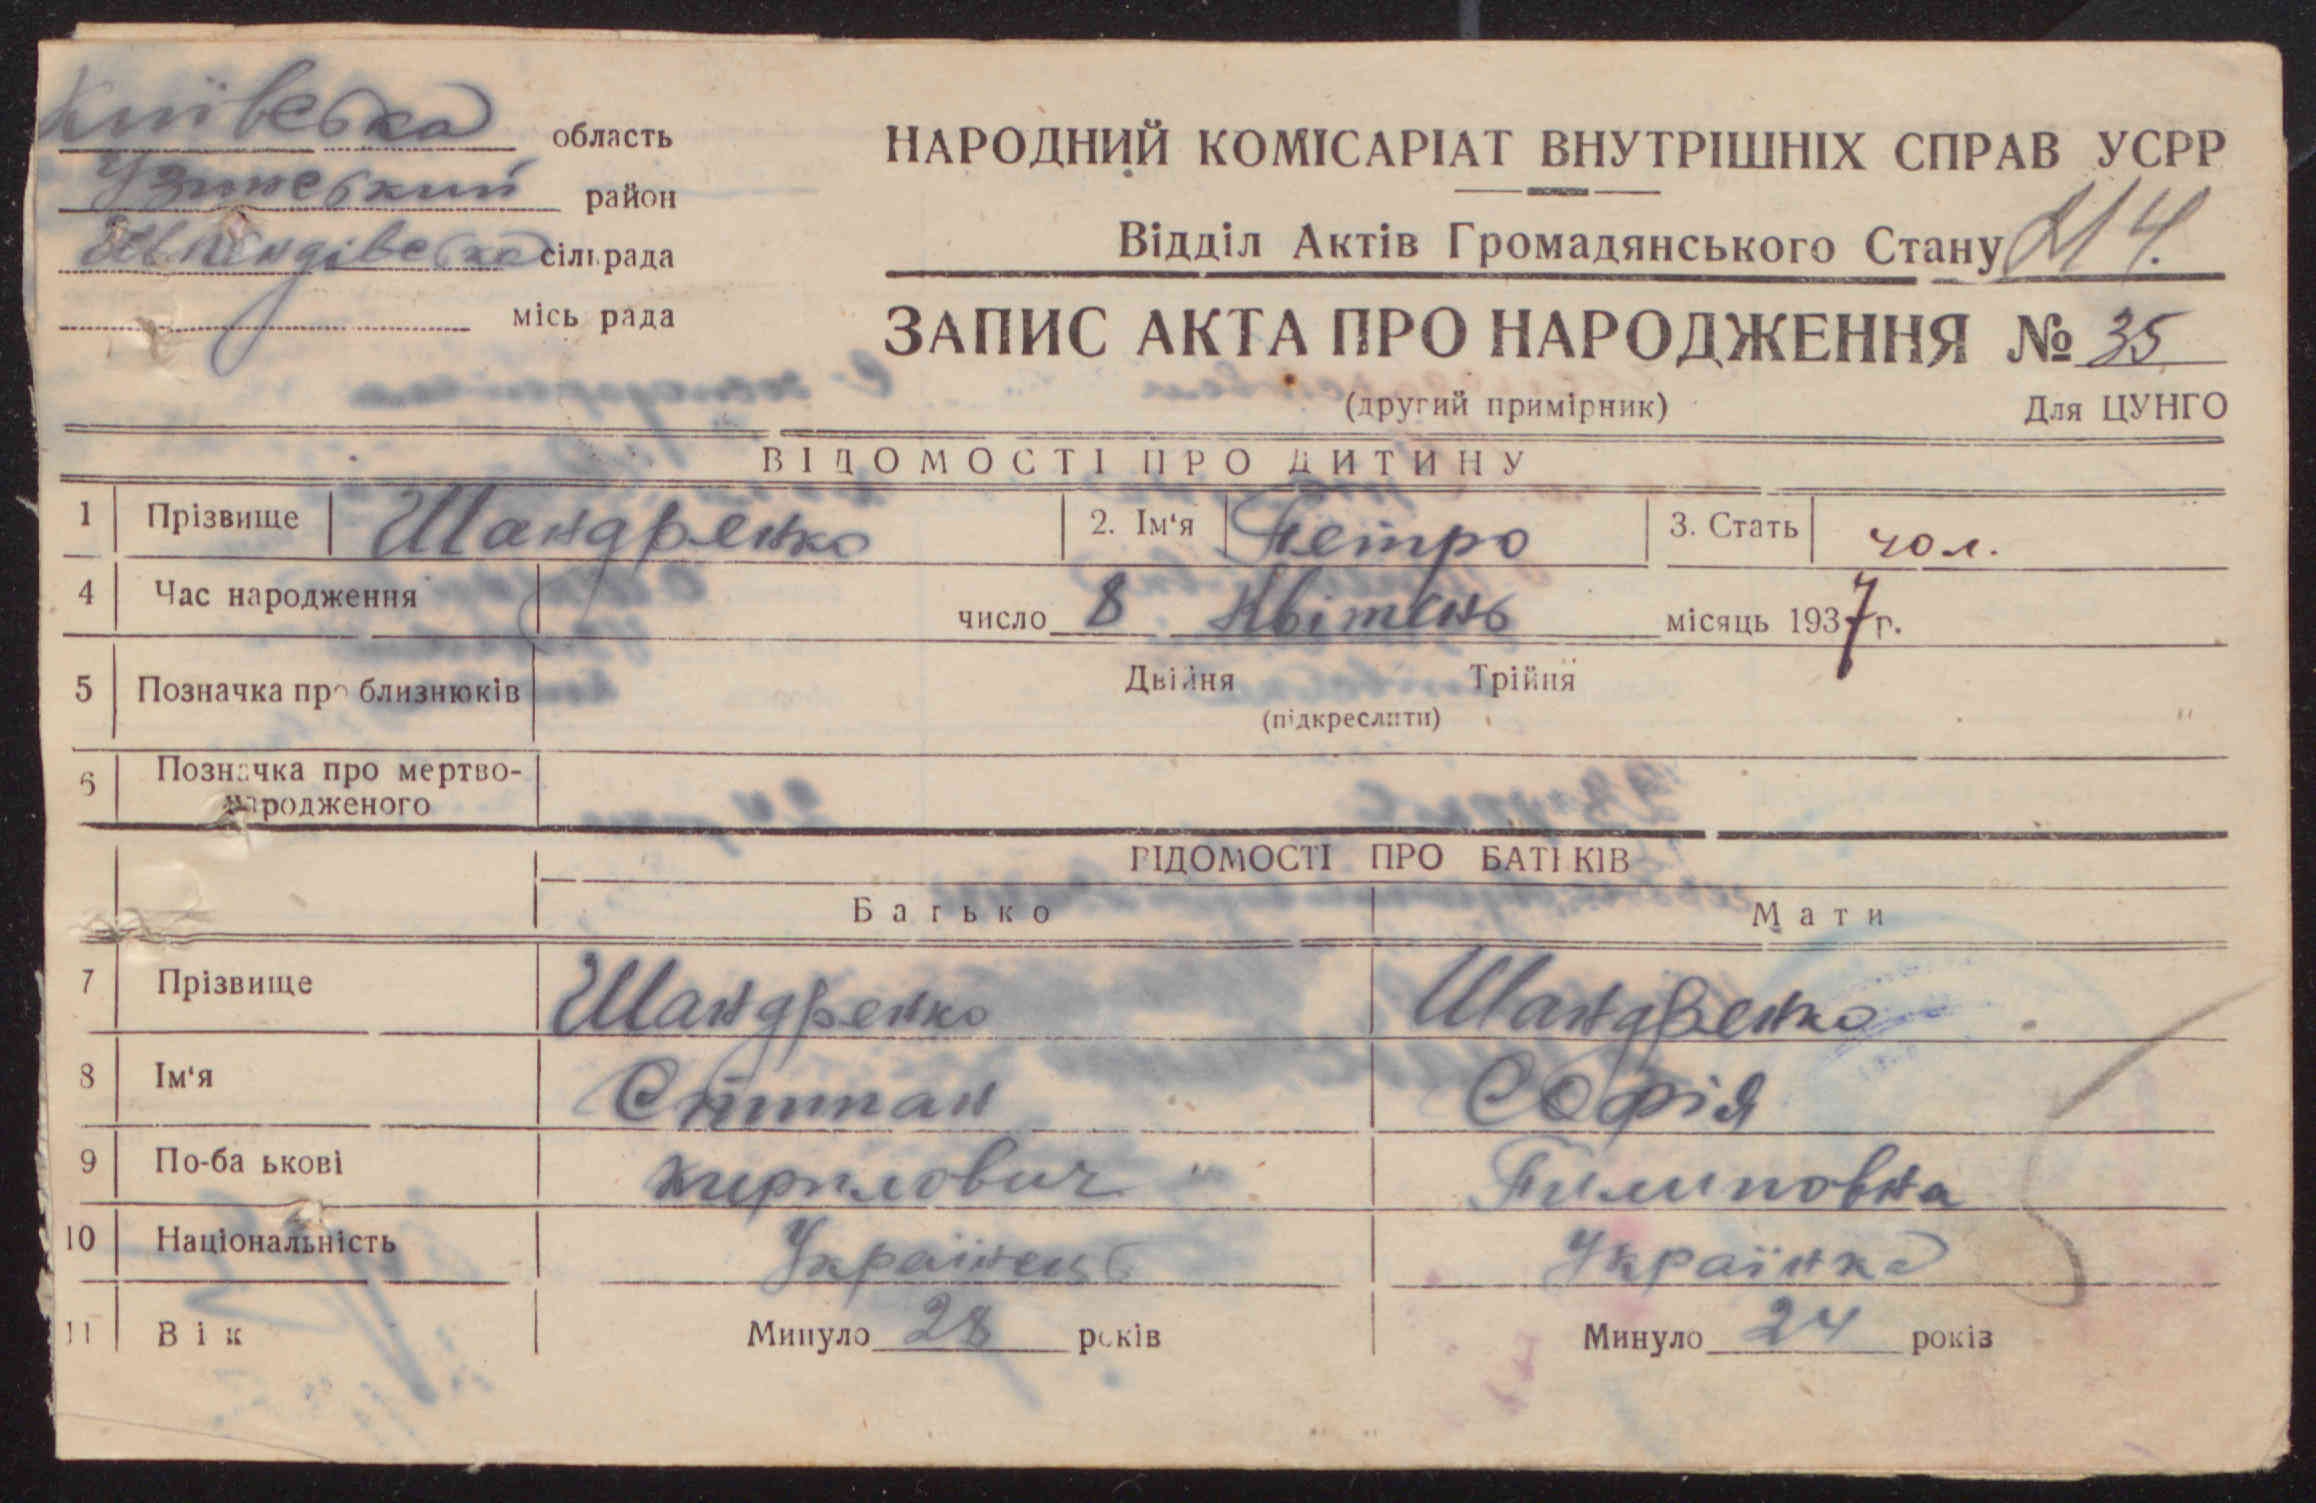 Київська область
Узинський район
сільрада
місь рада
НАРОДНИЙ КОМІСАРІАТ ВНУТРІШНІХ СПРАВ УСРР
Відділ Актів Громадянського Стану
ЗАПИС АКТА ПРО НАРОДЖЕННЯ № 35
(другий примірник) Для ЦУНГО
ВІДОМОСТІ ПРО ДИТИНУ
1 Прізвище Шандренко 2. Ім‘я Петро 3. Стать чол.
4 Час народження число 8 Квітень місяць 1937 г.
5 Позначка про близнюків Двійня Трійня
(підкреслити)
6 Позначка про мертво-
народженого
ВІДОМОСТІ ПРО БАТЬКІВ
Батько Мати
7 Прізвище Шандренко Шандренко
8 Ім‘я Софія
9 По-ба ькові Кирилович Пилиповна
10 Національність Українець Українка
11 Вік Минуло 28 років Минуло 24 років